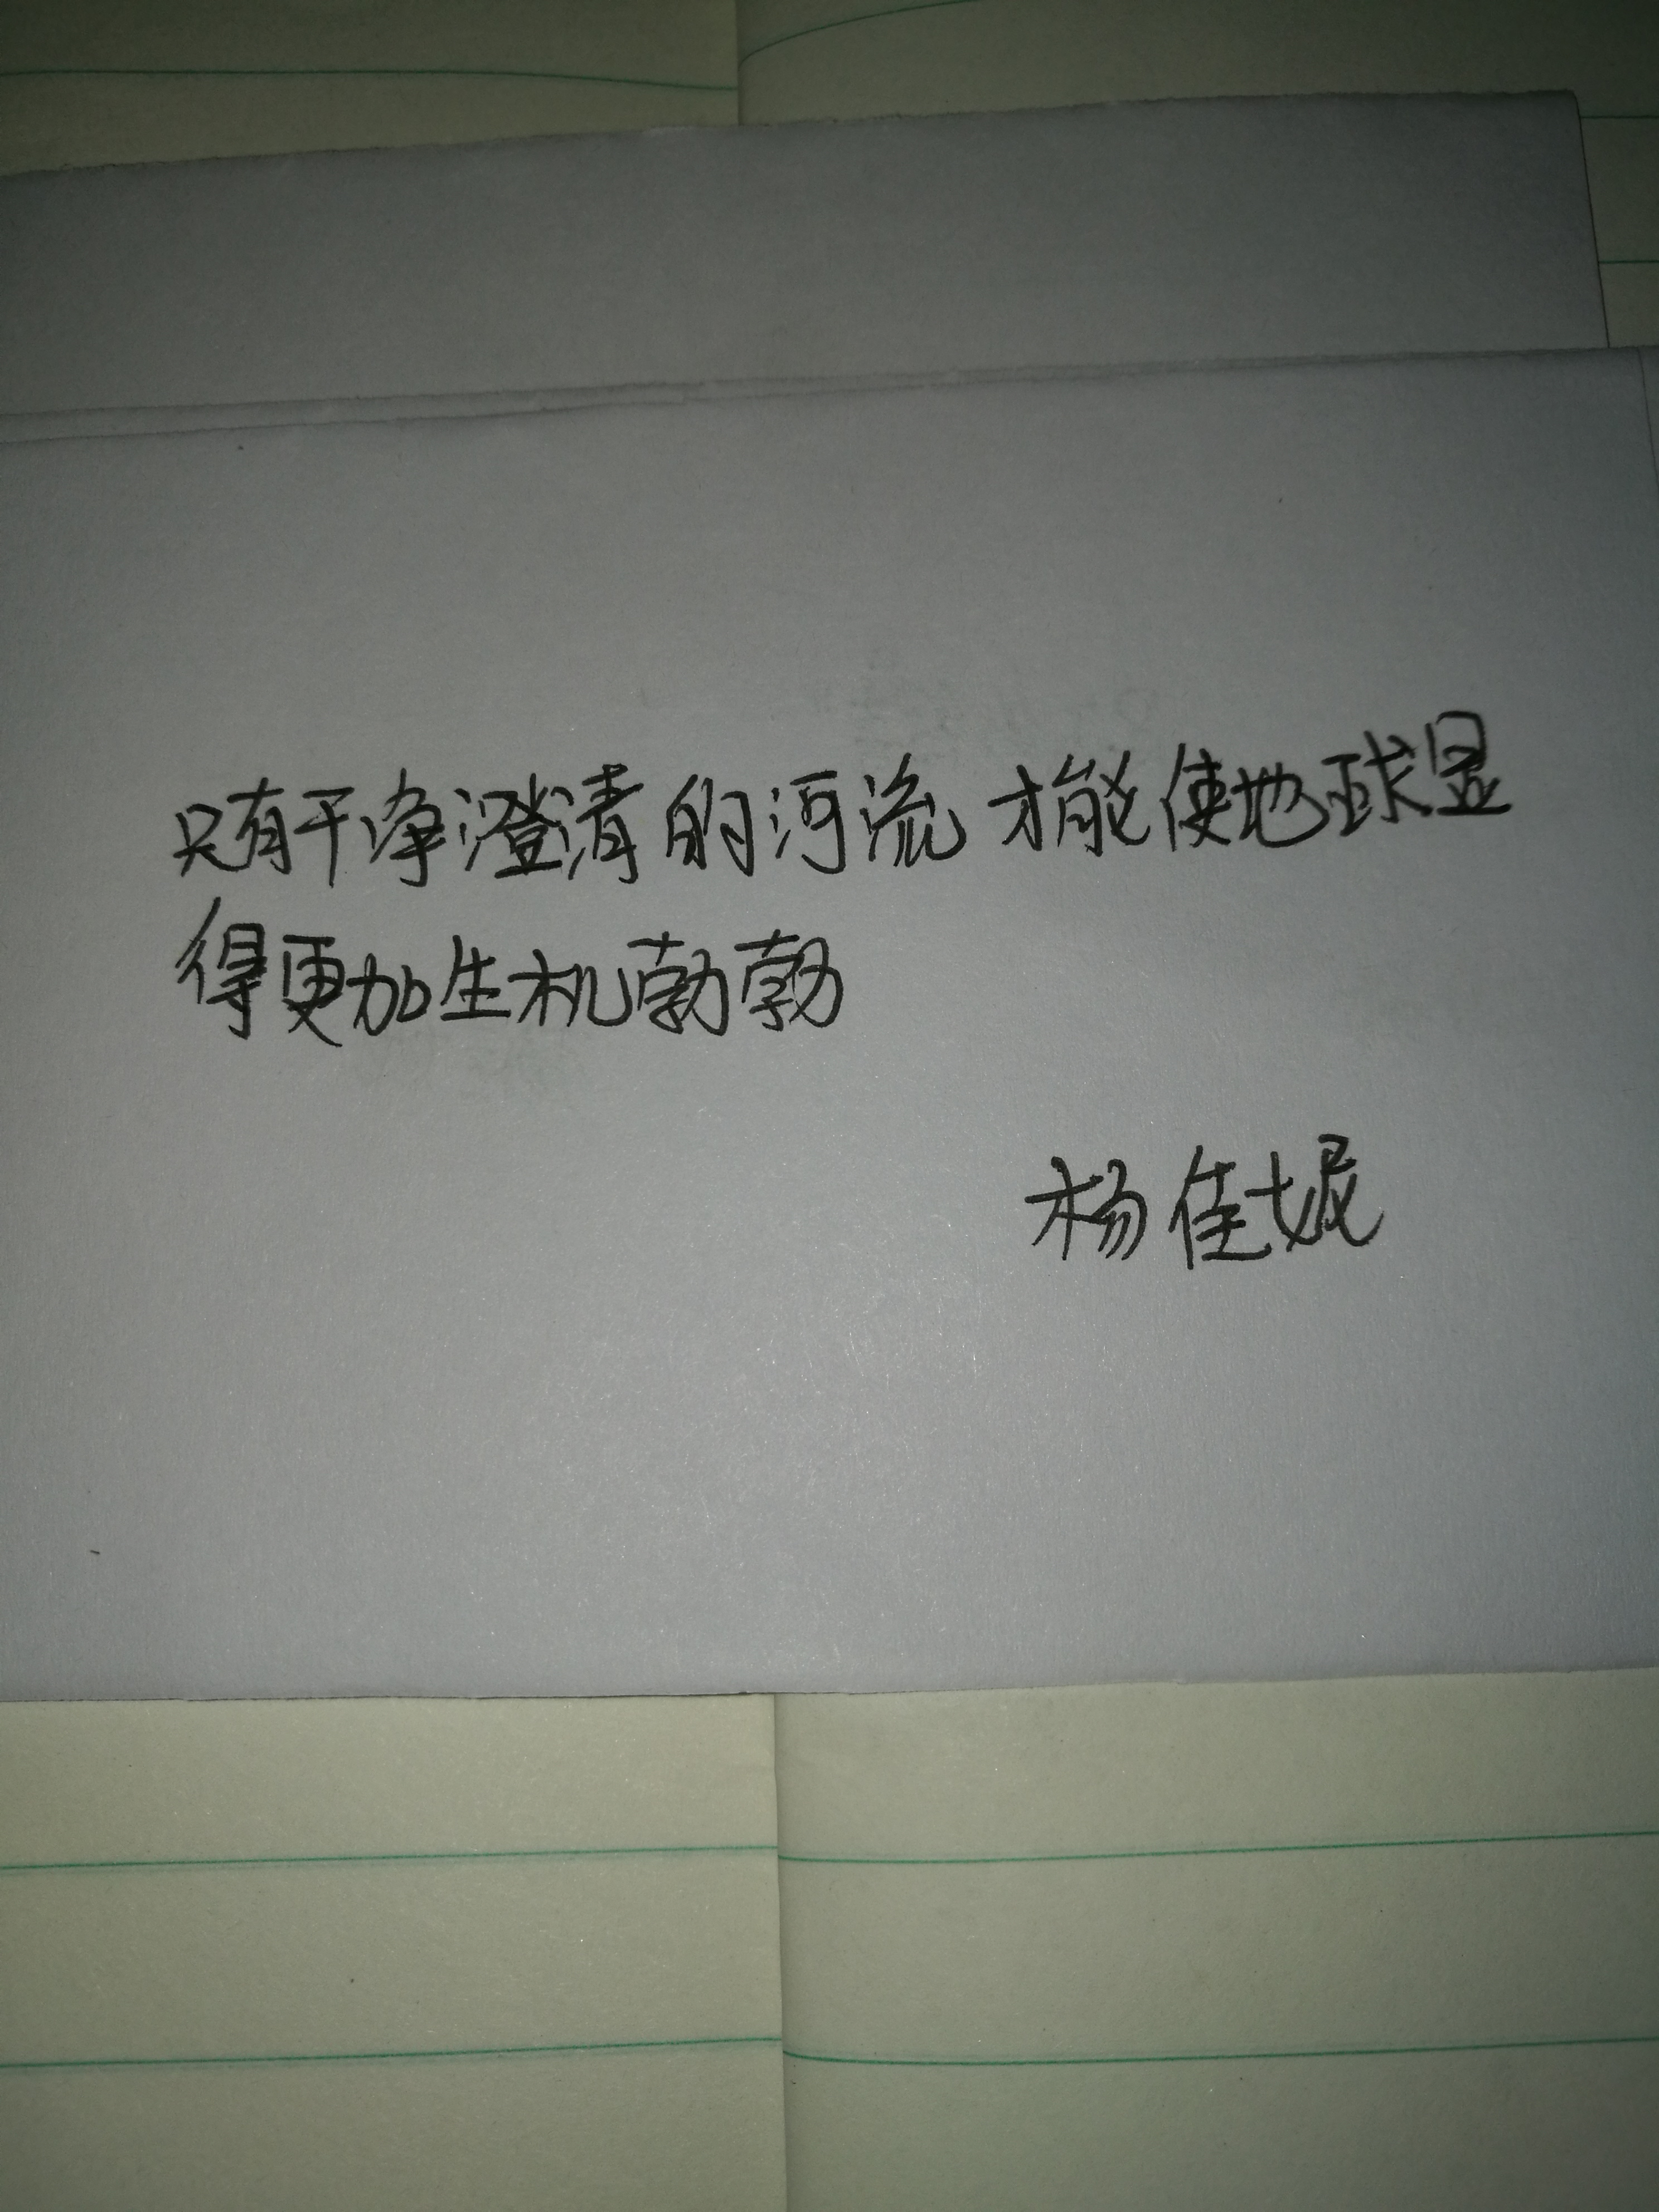 只有干净澄清的河流才能使地球显
得更加生机勃勃
杨佳妮